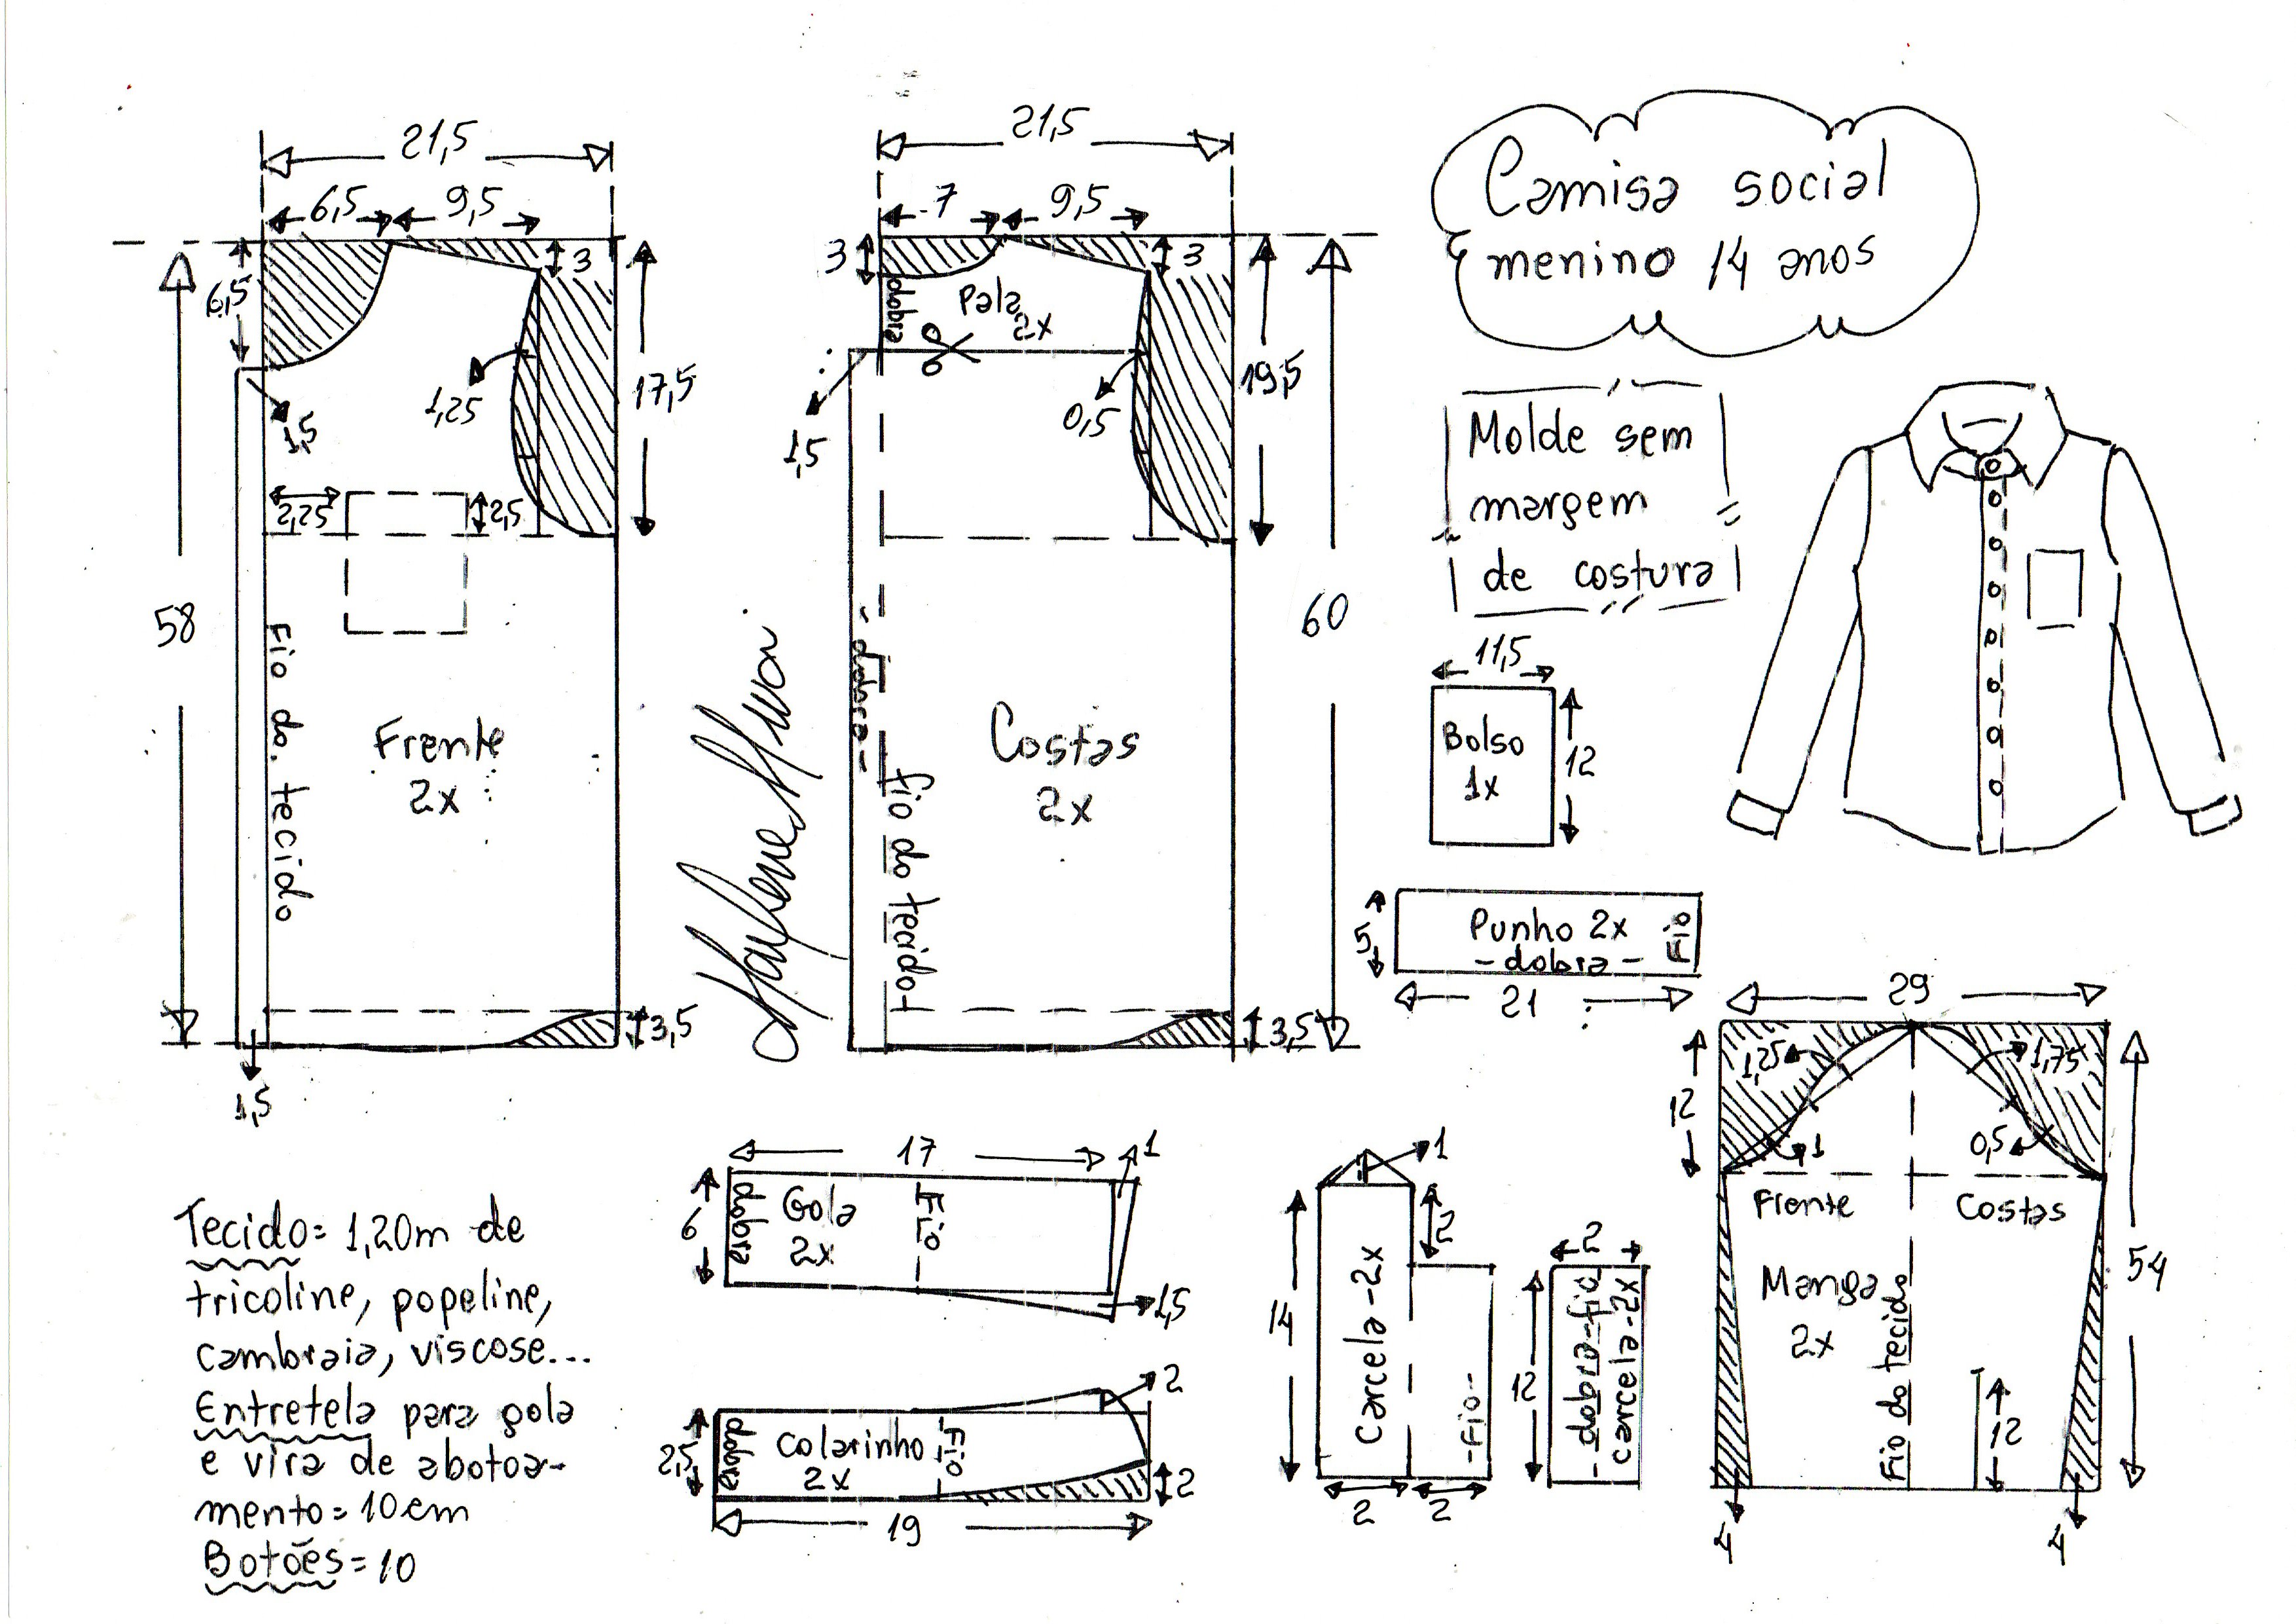 Camisa social
menino 14 anos
Molde sem
margem
de costura
21,5
6,5
9,5
6,5
3
17,5
1,5
1,25
2,25
2,5
58
Fio do tecido
Frente
2x
3,5
1,5
21,5
7
9,5
3
3
dobra
Pala
2x
19,5
1,5
0,5
60
- dobra -
Fio do tecido
Costas
2x
3,5
Marlene Mukai
11,5
Bolso
1x
12
5
Punho 2x
- dobra -
Fio
21
29
1,25
1,75
12
1
0,5
Frente
Costas
Manga
2x
Fio do tecido
12
54
4
4
17
1
6
dobra
Gola
2x
Fio
1,5
2
2,5
dobra
colarinho
2x
Fio
2
19
1
2
14
Carcela-2x
-Fio-
2
2
2
12
-dobra-fio
carcela-2x
Tecido= 1,20m de
tricoline, popeline,
cambraia, viscose...
Entretela para gola
e vira de abotoa-
mento= 10cm
Botões= 10